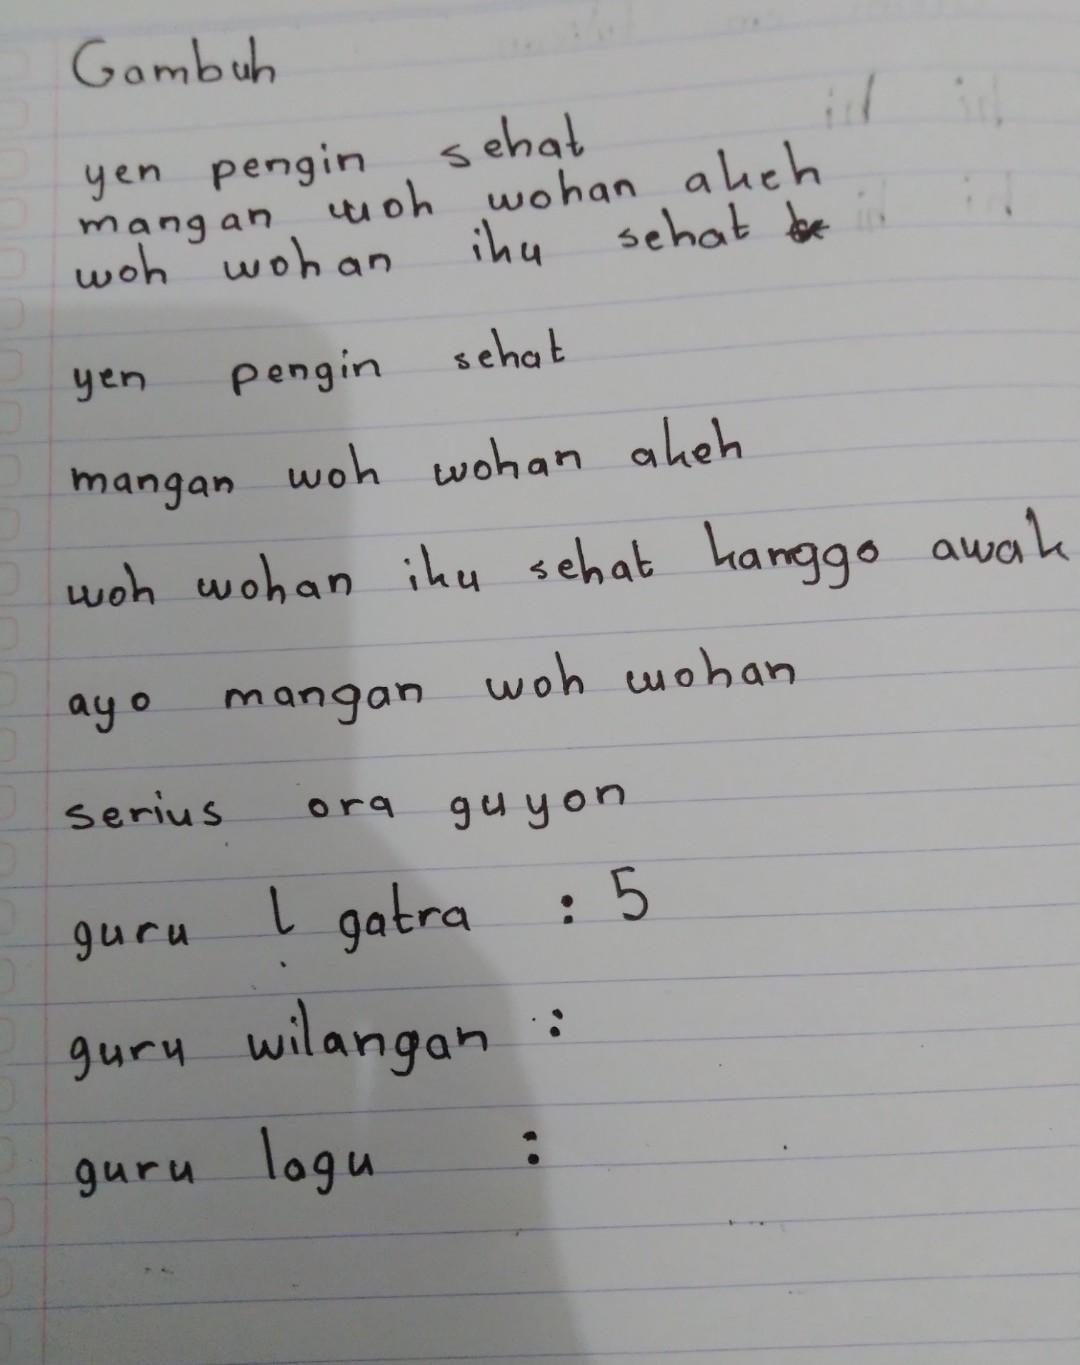 Gambuh
yen pengin sehat
mangan woh wohan akeh
woh wohan iku sehat
yen pengin sehat
mangan woh wohan akeh
woh wohan iku sehat kanggo awak
ayo mangan woh wohan
serius ora guyon
guru l gatra : 5
guru wilangan :
guru lagu :